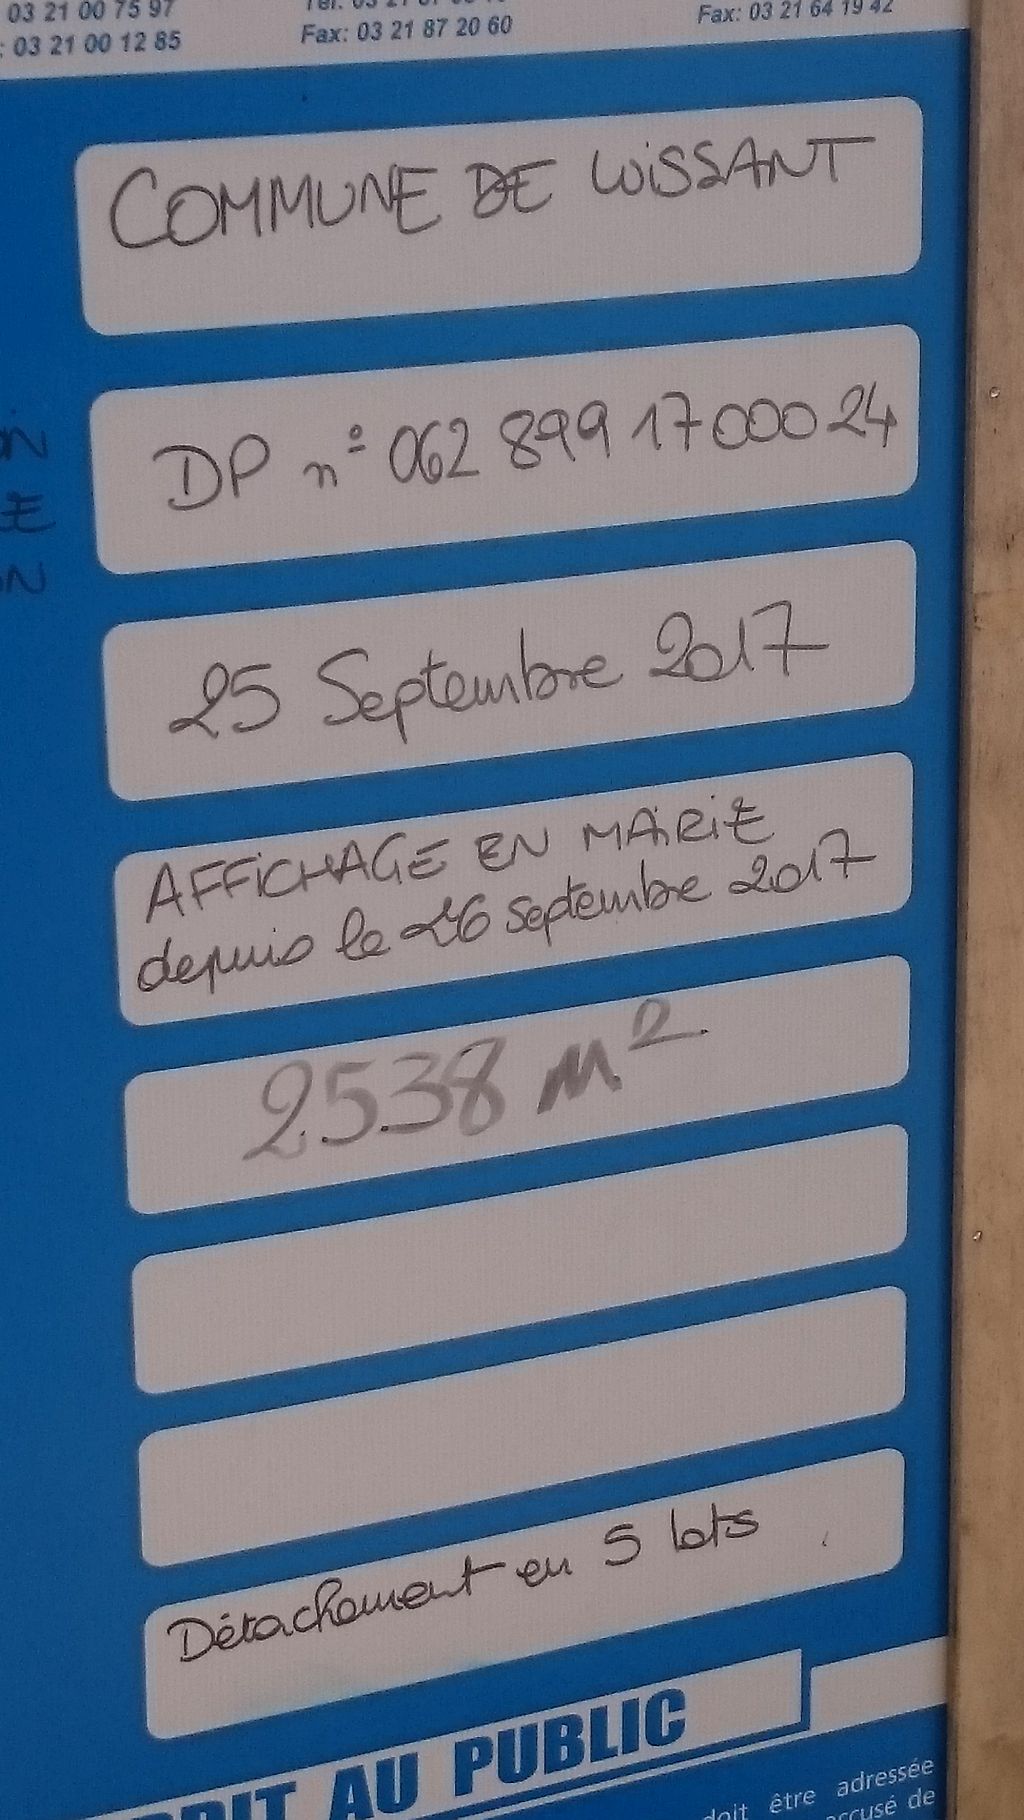 03 21 00 75 97
: 03 21 00 12 85
Fax: 03 21 87 20 60
Fax: 03 21 64 19 42
COMMUNE DE WISSANT
DP n° 062 899 17 000 24
25 Septembre 2017
AFFICHAGE EN MAIRIE
depuis le 26 septembre 2017
2538 m²
Détachement en 5 lots
AU PUBLIC
doit être adressée
de